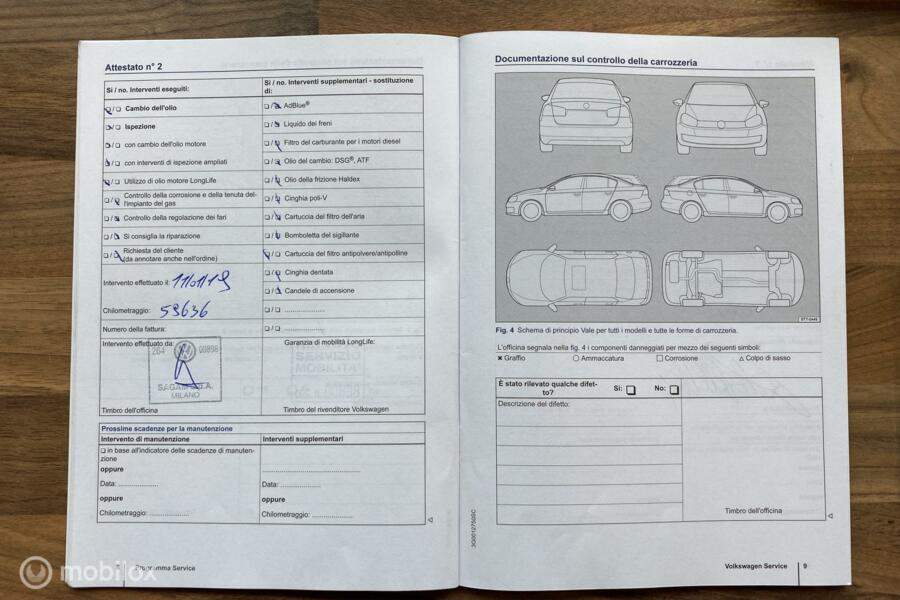 Attestato n° 2
Si / no. Interventi eseguiti:
Cambio dell'olio
Ispezione
con cambio dell'olio motore
con interventi di ispezione ampliati
Utilizzo di olio motore LongLife
Controllo della corrosione e della tenuta del-
l'impianto del gas
Controllo della regolazione dei fari
Si consiglia la riparazione
Richiesta del cliente
(da annotare anche nell'ordine)
Intervento effettuato il: 11/01/19
Chilometraggio: 59636
Numero della fattura:
Intervento effettuato da:
264 00898
SAGAM S.p.A.
MILANO
Timbro dell'officina
Si / no. Interventi supplementari - sostituzione
di:
AdBlue®
Liquido dei freni
Filtro del carburante per i motori diesel
Olio del cambio: DSG®, ATF
Olio della frizione Haldex
Cinghia poli-V
Cartuccia del filtro dell'aria
Bomboletta del sigillante
Cartuccia del filtro antipolvere/antipolline
Cinghia dentata
Candele di accensione
Garanzia di mobilità LongLife:
Timbro del rivenditore Volkswagen
Prossime scadenze per la manutenzione
Intervento di manutenzione
in base all'indicatore delle scadenze di manuten-
zione
oppure
Data: ....................
oppure
Chilometraggio: ....................
Interventi supplementari
Data: ....................
oppure
Chilometraggio: ....................
Programma Service
Documentazione sul controllo della carrozzeria
Fig. 4 Schema di principio Vale per tutti i modelli e tutte le forme di carrozzeria.
L'officina segnala nella fig. 4 i componenti danneggiati per mezzo dei seguenti simboli:
✖ Graffio ○ Ammaccatura □ Corrosione △ Colpo di sasso
È stato rilevato qualche difet-
to?
Sì: □ No: □
Descrizione del difetto:
Timbro dell'officina
3G0012750SC
Volkswagen Service 9
mobilox